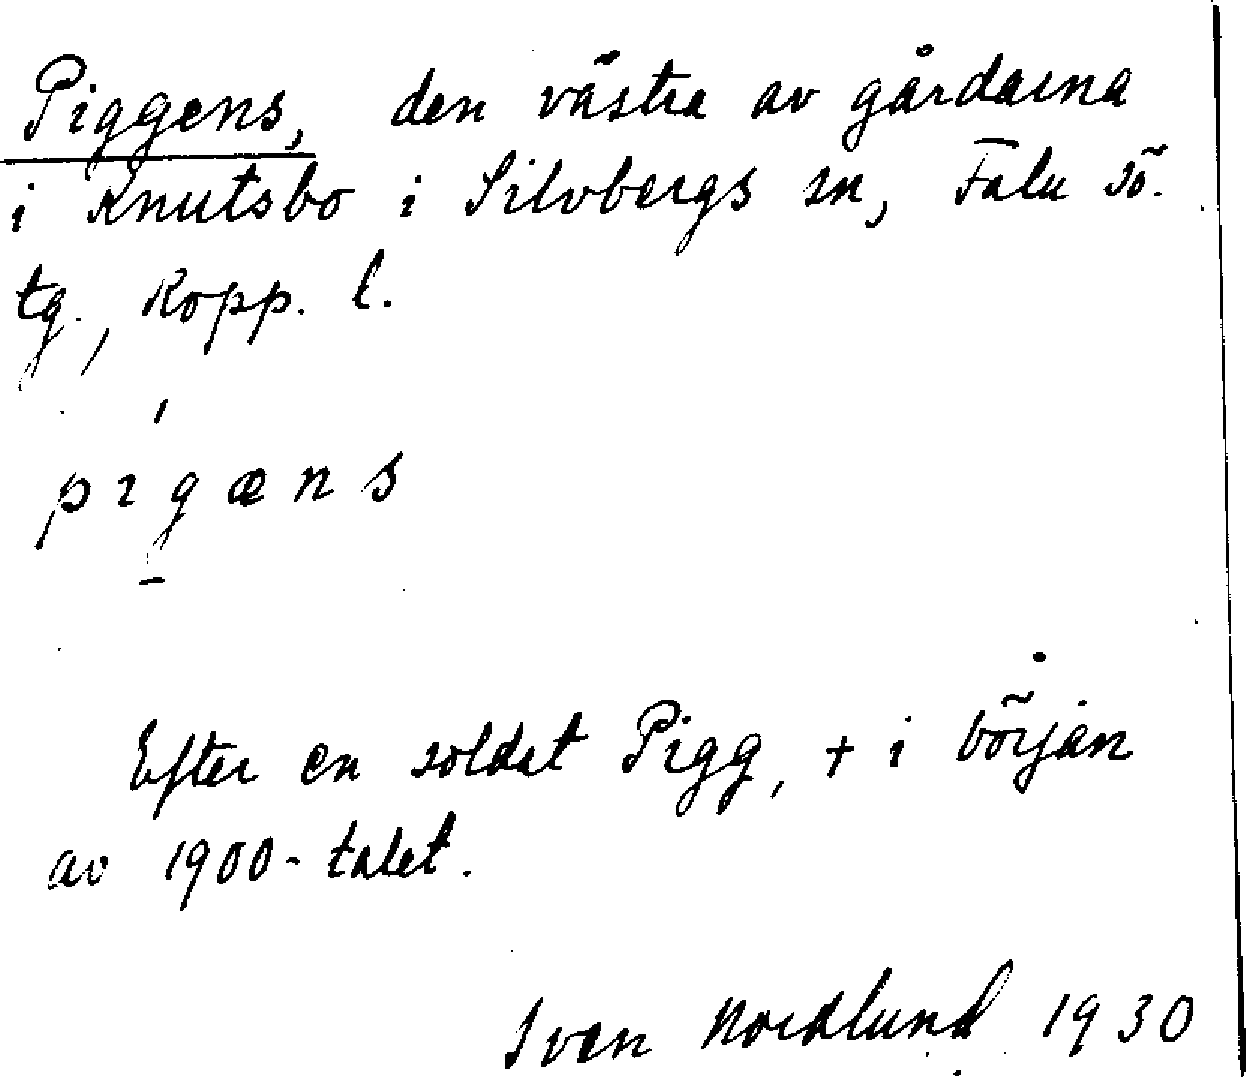 Piggens, den västra av gårdarna
i Knutsbo i Silvbergs sn, Falu sö.
tg., Kopp. l.
pigæns
Efter en soldat Pigg, + i början
av 1900-talet.
Sven Nordlund 1930